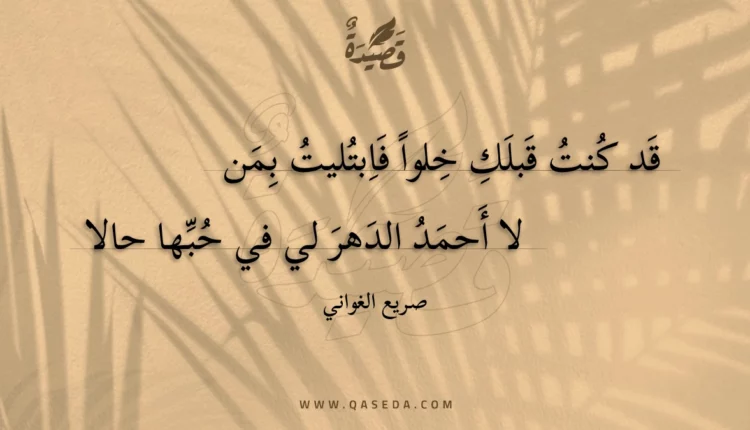 قَصِيْدَةٌ
قَد كُنتُ قَبلَكِ خِلواً فَاِبتُليتُ بِمَن
لا أَحمَدُ الدَهرَ لي في حُبِّها حالا
صريع الغواني
WWW.QASEDA.COM